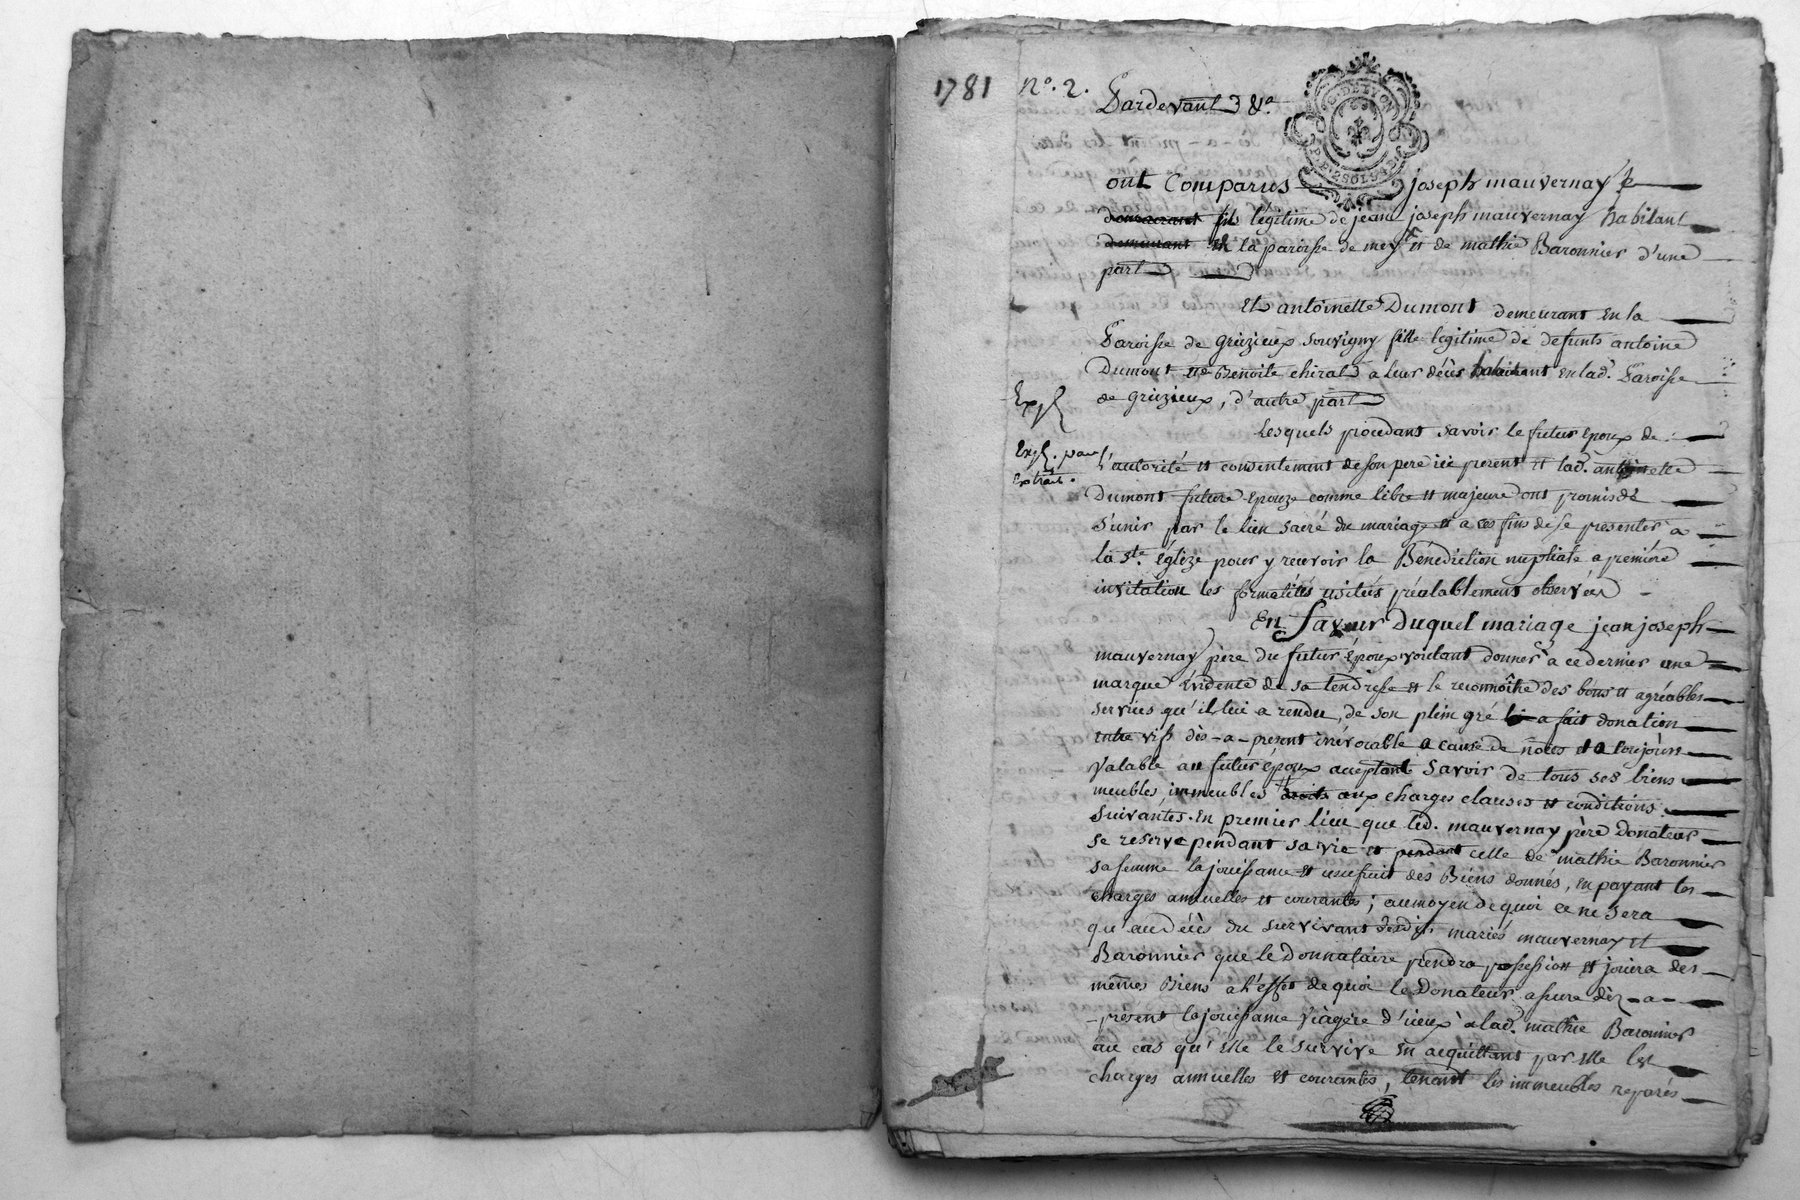 1781 n.° 2.
Pardevant &.a
G. DE LYON
ont Comparus joseph mauvernay
fils légitime de jean joseph mauvernay habitant
en la paroisse de meys et de mathie Baronnier d'une
part
Et antoinette Dumont demeurant en la
Paroisse de grézieux souvigny fille legitime de defunts antoine
Dumont et Benoite chirat a leur décès habitant en lad. Paroisse
de grézieux, d'autre part
Lesquels procedant savoir le futur epoux de
Exp.
Exp. pour
extrait.
l'autorité et consentement de son pere icy present et lad. antoinette
Dumont future epouze comme libre et majeure ont promis de
s'unir par le lien sacré du mariage et a ces fins de se presenter a
la S.te Eglize pour y recevoir la Bénédiction nuptiale a premiére
invitation les formalités usitées préalablement observées
En faveur Duquel mariage jean joseph
mauvernay père du futur époux voulant donner à ce dernier une
marque évidente de sa tendresse et le reconnoître des bons et agréables
services qu'il lui a rendu, de son plein gré a fait donation
entre vifs dès-a-présent irrévocable a cause de noces et a toujours
valable au futur époux acceptant Savoir de tous ses biens
meubles, immeubles droits aux charges clauses et conditions
suivantes. En premier lieu que led. mauvernay père Donateur
se reserve pendant sa vie et pendant celle de mathie Baronnier
sa femme la jouissance et usufruit des Biens donnés, en payant les
charges annuelles et courantes; au moyen de quoi ce ne sera
qu'au décès du survivant desdits mariés mauvernay et
Baronnier que le Donnataire prendra possession et jouira des
mêmes Biens a l'effet de quoi le Donateur assure dèz-a-
-present la jouissance viagére d'iceux à lad. mathie Baronnier
au cas qu'elle le survive en acquittant par elle les
charges annuelles et courantes, tenant les immeubles reparés